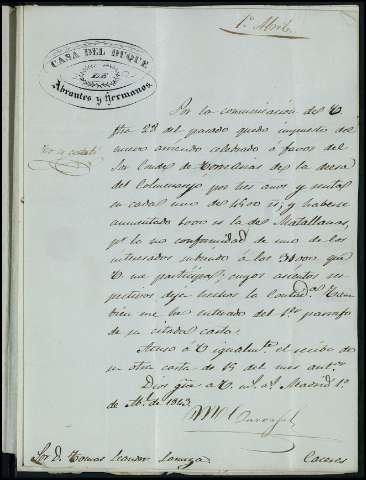 1º Abril
CASA DEL DUQUE
DE
Abrantes y Hermanos
Por la comunicacion de V.
fha 22 del pasado quedo impuesto del
nuevo arriendo celebrado á favor del
Sor Conde de Torrearias de la desa
del Colmenarejo por tres años y rentas
en cada uno de 4500 rs; y haberse
aumentado 1000 rs la de Matallana,
pr la no conformidad de uno de los
interesados subiendo á los 31000 que
V. me participa; cuyos asientos res-
pectivos deja hechos la Contada. Tam-
bien me he enterado del 1er parrafo
de su citada carta.
Acuso á V. igualte. el recibo de
su otra carta de 15 del mes antor.
Dios gue á V. ms. as. Madrid 1º
de Abl. de 1843
Sor D. Tomas Leandro
Caceres